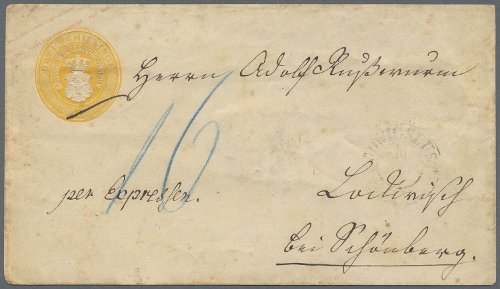 Herrn Adolf Rußwurm
16
per Expressen.
Lockwisch
bei Schönberg.